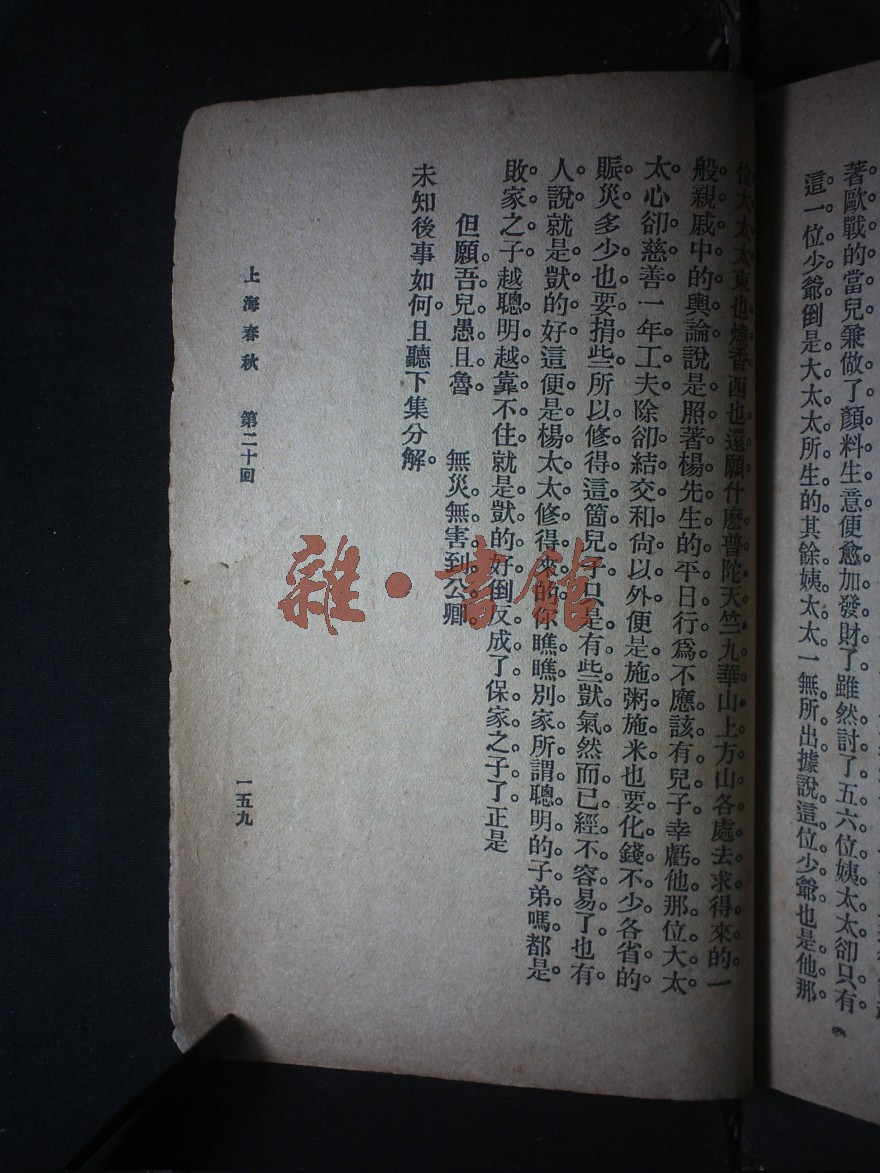 著歐戰的當兒兼做了顏料生意便愈加發財了雖然討了五六位姨太太卻只有
這一位少爺倒是大太太所生的其餘姨太太一無所出據說這位少爺也是他那
位大太太東也燒香西也還願什麼普陀天竺九華山上方山各處去求得來的一
般親戚中的輿論說是照著楊先生的平日行為不應該有兒子幸虧他那位大太
太心卻慈善一年工夫除卻結交和尙以外便是施粥施米也要化錢不少各省的
賑災多少也要捐些所以修得這箇兒子只是有些獃氣然而已經不容易了也有
人說就是獃的好這便是楊太太修得來的你瞧瞧別家所謂聰明的子弟嗎都是
敗家之子越聰明越靠不住就是獃的好倒反成了保家之子了正是
但願吾兒愚且魯。 無災無害到公卿。
未知後事如何且聽下集分解。
上海春秋 第二十回
一五九
雜·書館